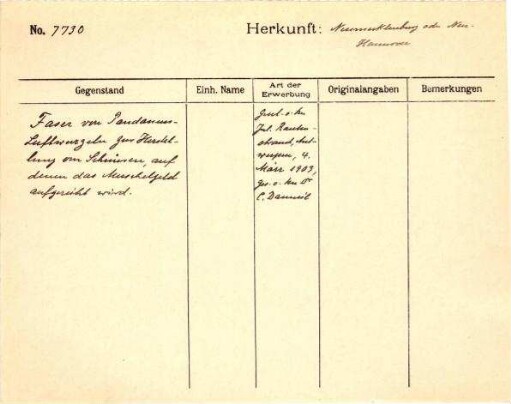 No. 7730
Herkunft: Neumecklenburg oder Neu-
Hannover
Gegenstand
Einh. Name
Art der
Erwerbung
Originalangaben
Bemerkungen
Faser von Pandanus-
Luftwurzeln zur Herstel-
lung von Schnüren, auf
denen das Muschelgeld
aufgereiht wird.
Jul.
4.
März 1903,
C. Danneil